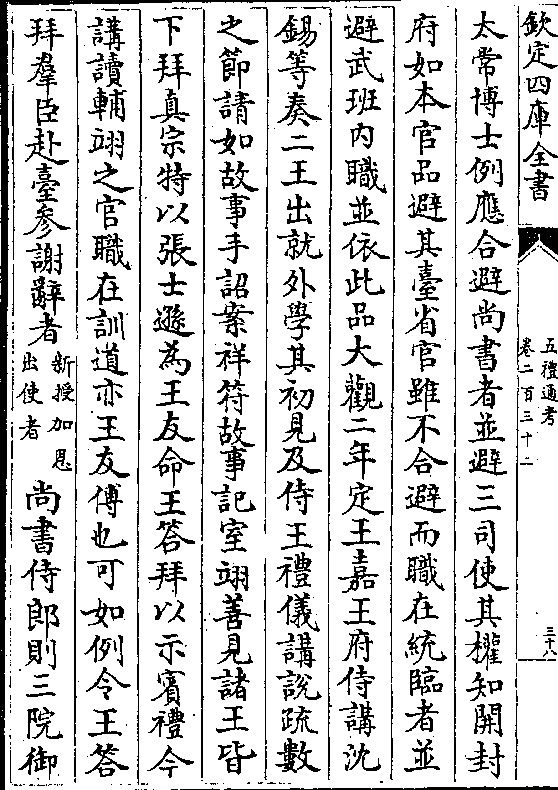 欽定四庫全書
五禮通考
卷二百三十二
三十八
太常博士例應合避尚書者並避三司使其權知開封
府如本官品避其臺省官雖不合避而職在統臨者並
避武班内職並依此品大觀二年定王嘉王府侍講沈
錫等奏二王出就外學其初見及侍王禮儀講說疏數
之節請如故事手詔案祥符故事記室翊善見諸王皆
下拜真宗特以張士遜為王友命王答拜以示賓禮今
講讀輔翊之官職在訓道亦王友傅也可如例令王答
拜羣臣赴臺參謝辭者新授加恩出使者尚書侍郎則三院御